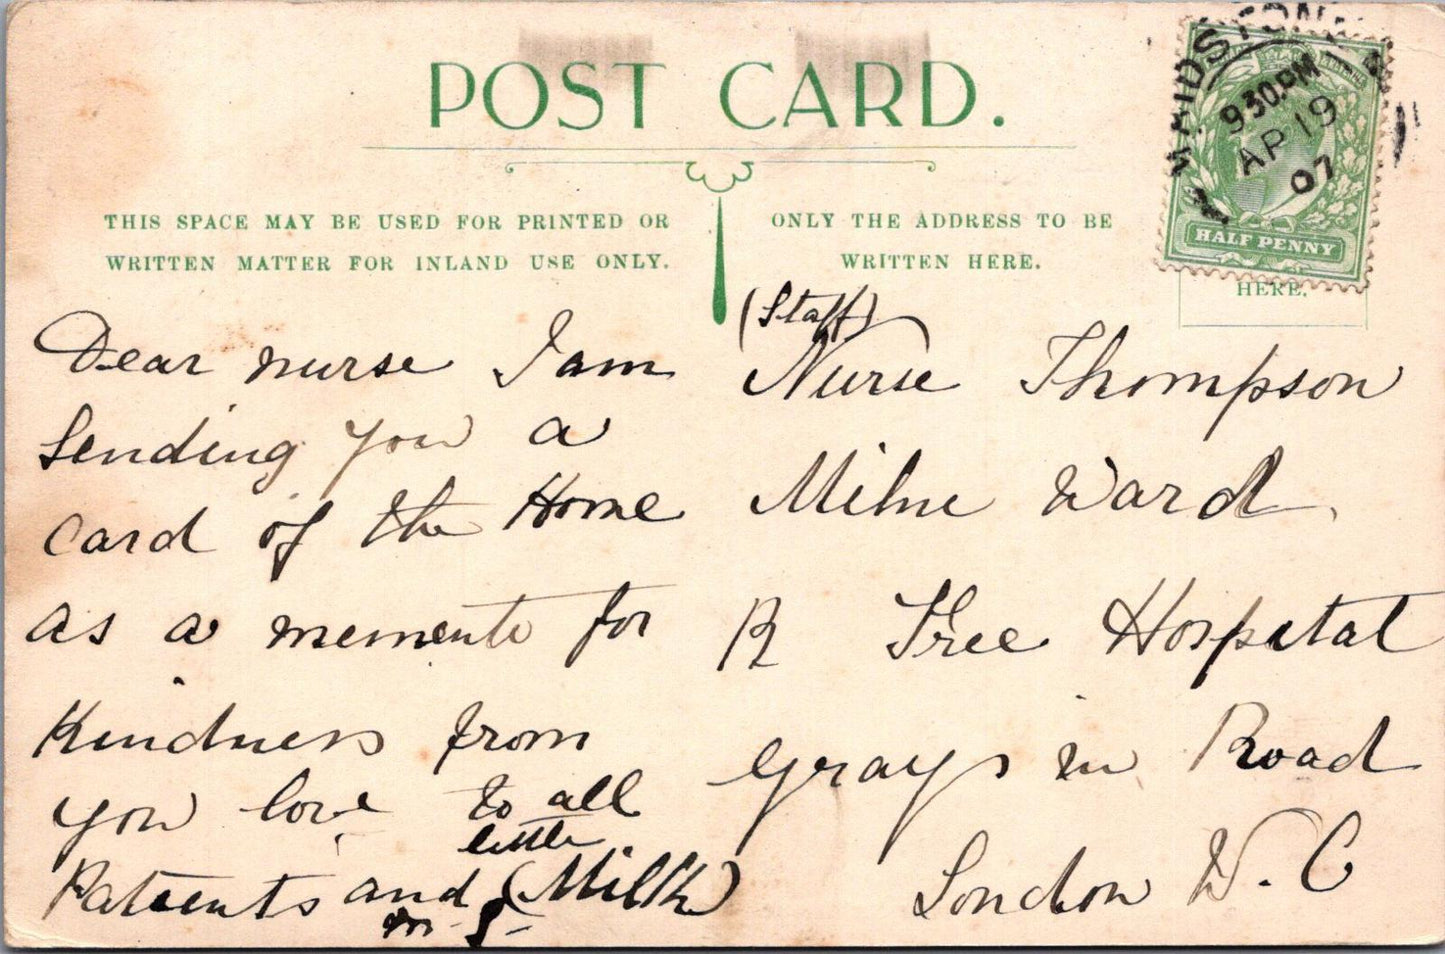 POST CARD.
MAIDSTONE
930PM
AP 19
07
HALF PENNY
HERE.
THIS SPACE MAY BE USED FOR PRINTED OR
WRITTEN MATTER FOR INLAND USE ONLY.
ONLY THE ADDRESS TO BE
WRITTEN HERE.
Dear nurse I am
Sending you a
Card of the Home
as a memento for
Kindness from
you love to all
little
Patients and (Milk)
M-S-
(Staff)
Nurse Thompson
Milne Ward
R Free Hospital
Grays in Road
London W.C